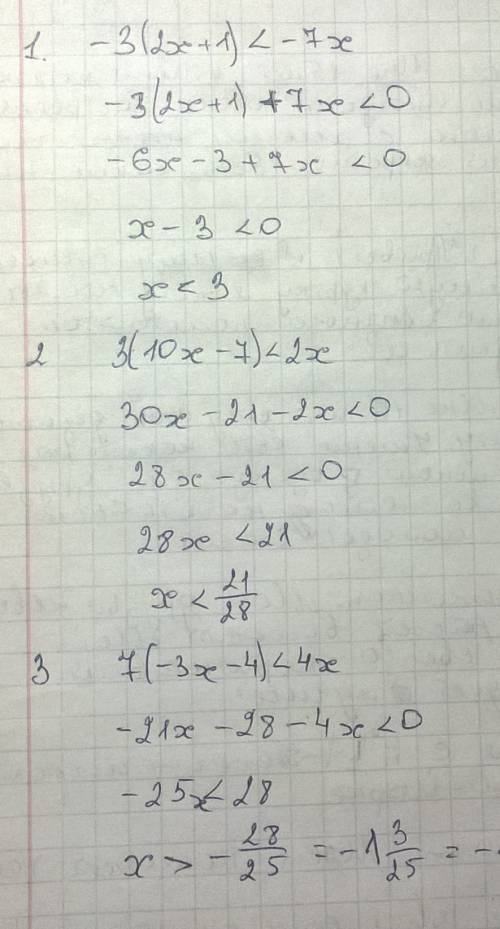 1. -3(2x+1) < -7x
-3(2x+1) +7x <0
-6x - 3 + 7x <0
x - 3 <0
x < 3
2 3(10x - 7) < 2x
30x - 21 - 2x <0
28x - 21 <0
28x < 21
x < 21/28
3 7(-3x - 4) < 4x
-21x - 28 - 4x <0
-25x < 28
x > - 28/25 = -1 3/25 = -